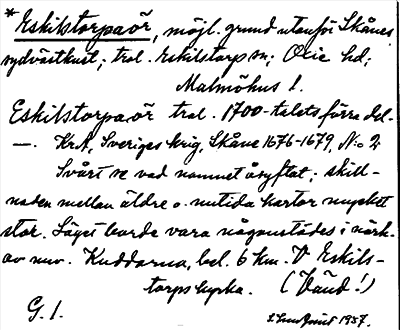 *Eskilstorpaör, möjl. grund utanför Skånes
sydvästkust; trol. Eskilstorp sn; Oxie hd;
Malmöhus l.
Eskilstorpaör trol. 1700-talets förra del
—. KrA, Sveriges krig, Skåne 1676-1679, No 2
Svårt se vad namnet åsyftat; skill-
naden mellan äldre o. nutida kartor mycket
stor. Läget borde vara någonstädes i närh.
av nuv. Kuddarna, bel. 6 km. V Eskils-
torps kyrka. (Vänd!)
G. 1. 1957.